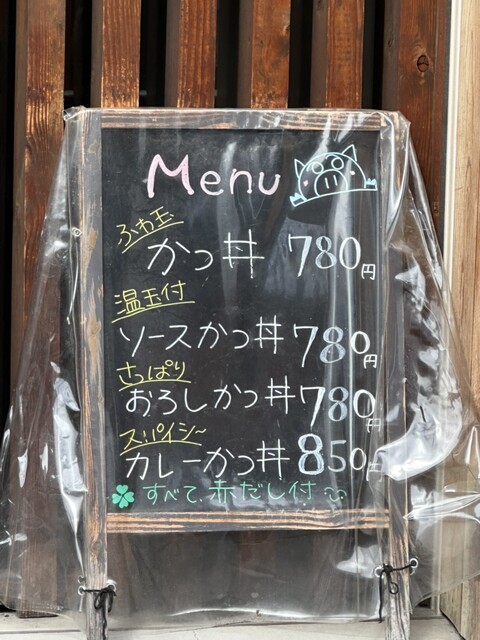 Menu
ふわ玉
かつ丼 780円
温玉付
ソースかつ丼 780円
さっぱり
おろしかつ丼 780円
スパイシ〜
カレーかつ丼 850円
すべて、赤だし付